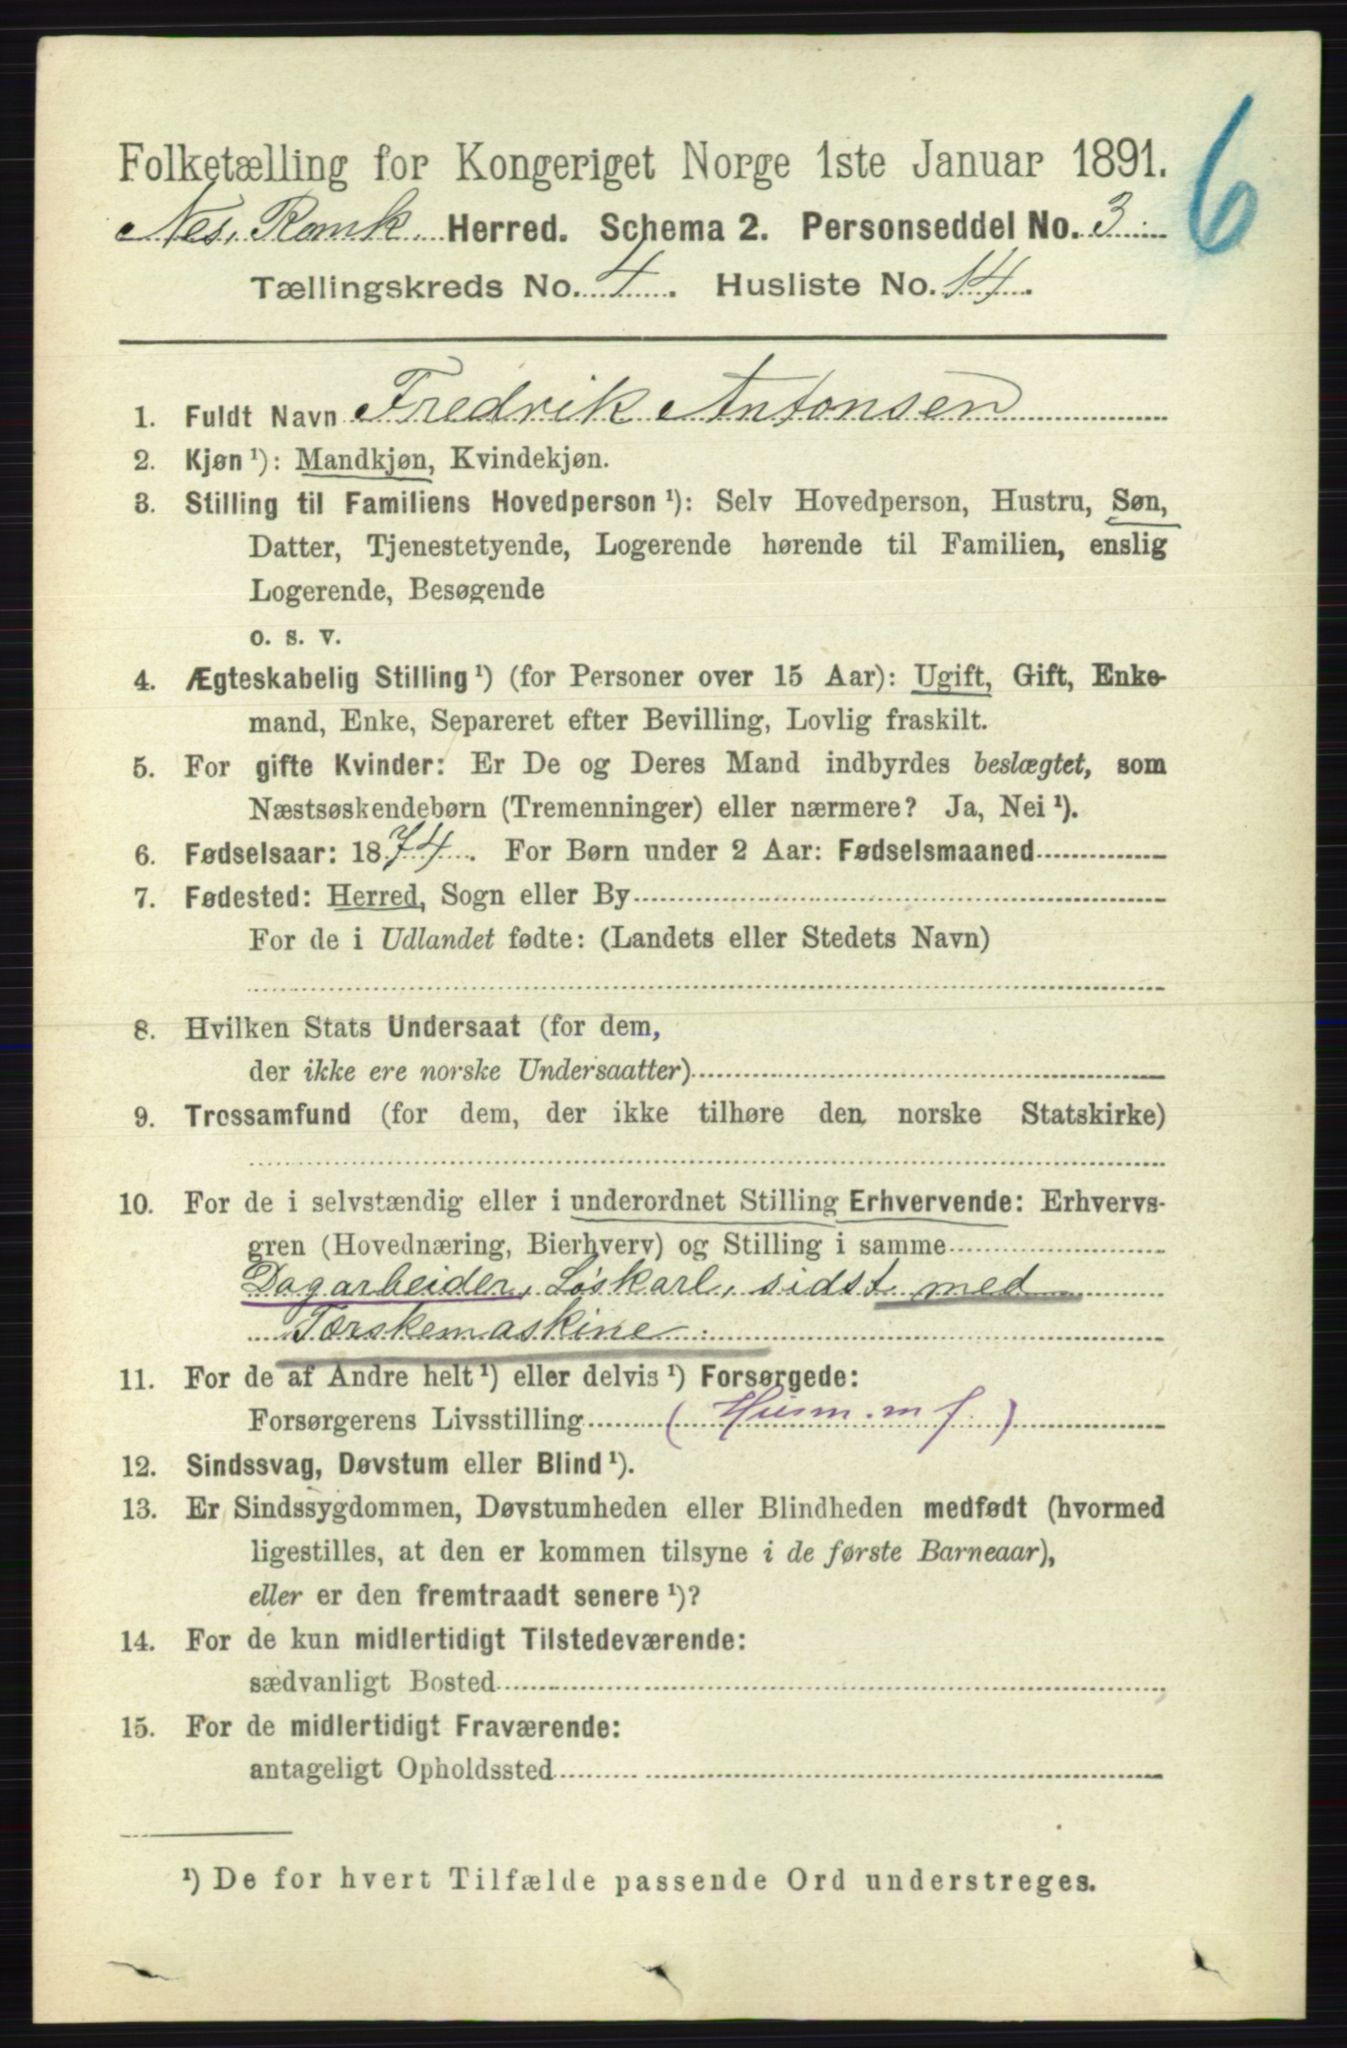 6
Folketælling for Kongeriget Norge 1ste Januar 1891.
Nes, Romk. Herred. Schema 2. Personseddel No. 3
Tællingskreds No. 4. Husliste No. 14.
1. Fuldt Navn Fredrik Antonsen
2. Kjøn ¹): Mandkjøn, Kvindekjøn.
3. Stilling til Familiens Hovedperson ¹): Selv Hovedperson, Hustru, Søn,
Datter, Tjenestetyende, Logerende hørende til Familien, enslig
Logerende, Besøgende
o. s. v.
4. Ægteskabelig Stilling ¹) (for Personer over 15 Aar): Ugift, Gift, Enke-
mand, Enke, Separeret efter Bevilling, Lovlig fraskilt.
5. For gifte Kvinder: Er De og Deres Mand indbyrdes beslægtet, som
Næstsøskendebørn (Tremenninger) eller nærmere? Ja, Nei ¹).
6. Fødselsaar: 1874. For Børn under 2 Aar: Fødselsmaaned
7. Fødested: Herred, Sogn eller By
For de i Udlandet fødte: (Landets eller Stedets Navn)
8. Hvilken Stats Undersaat (for dem,
der ikke ere norske Undersaatter)
9. Trossamfund (for dem, der ikke tilhøre den norske Statskirke)
10. For de i selvstændig eller i underordnet Stilling Erhvervende: Erhvervs-
gren (Hovednæring, Bierhverv) og Stilling i samme
Dagarbeider, Løskarl, sidst med
Tærskemaskine
11. For de af Andre helt ¹) eller delvis ¹) Forsørgede:
Forsørgerens Livsstilling (Husm. m f.)
12. Sindssvag, Døvstum eller Blind ¹).
13. Er Sindssygdommen, Døvstumheden eller Blindheden medfødt (hvormed
ligestilles, at den er kommen tilsyne i de første Barneaar),
eller er den fremtraadt senere ¹)?
14. For de kun midlertidigt Tilstedeværende:
sædvanligt Bosted
15. For de midlertidigt Fraværende:
antageligt Opholdssted
¹) De for hvert Tilfælde passende Ord understreges.